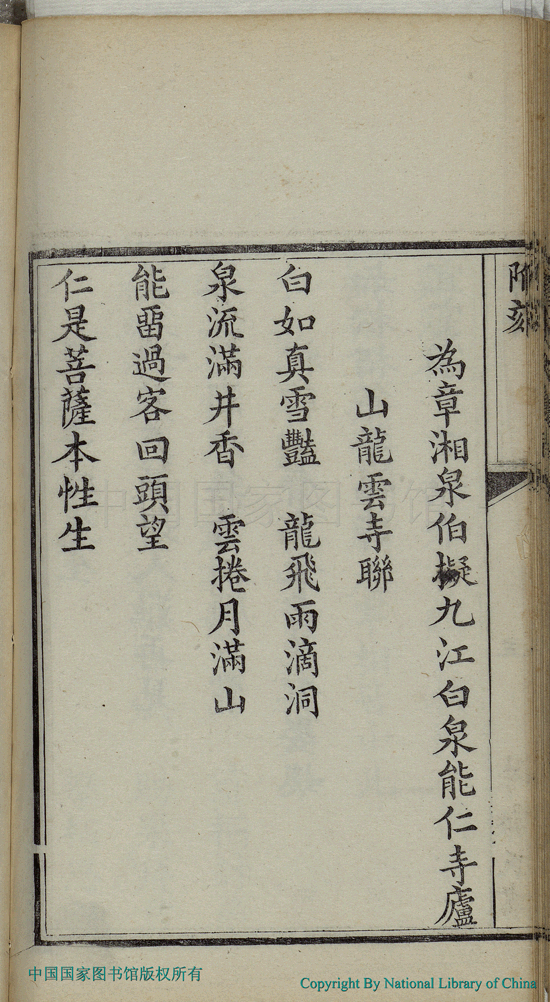 附刻
為章湘泉伯擬九江白泉能仁寺廬
山龍雲寺聯
白如真雪豔　龍飛雨滴洞
泉流滿井香　雲捲月滿山
能畱過客回頭望
仁是菩薩本性生
中国国家图书馆
中国国家图书馆版权所有
Copyright By National Library of China